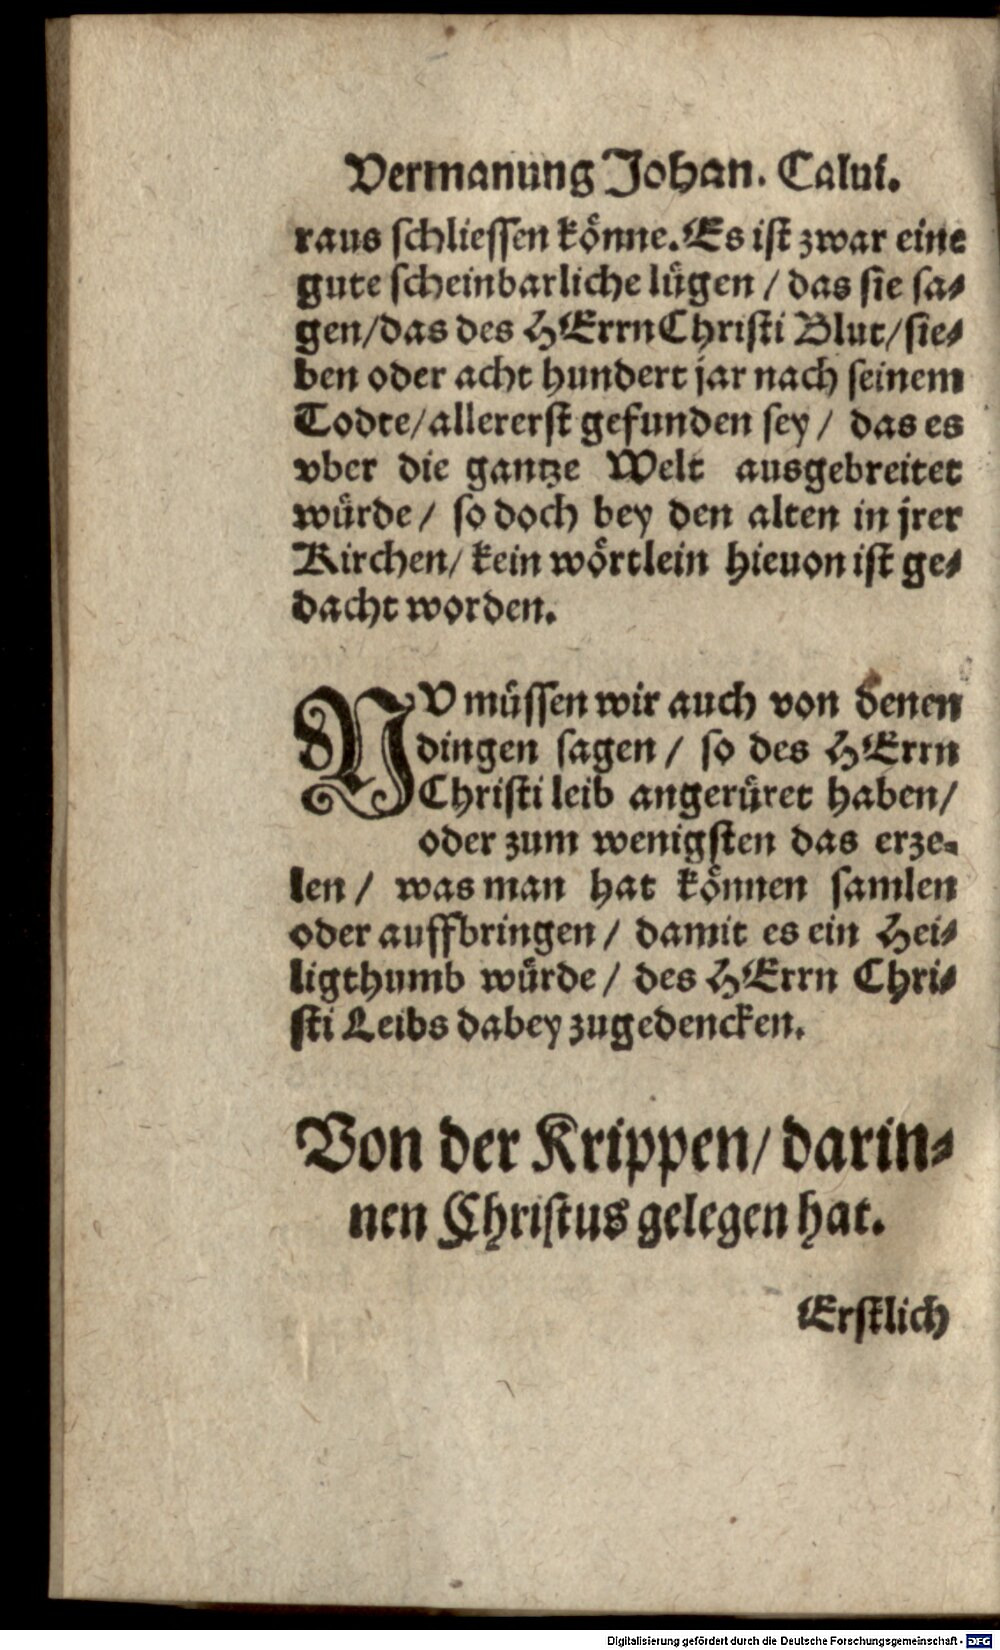 Vermanung Johan. Calui.
raus schliessen könne. Es ist zwar eine
gute scheinbarliche lügen / das sie sa⸗
gen/das des HErrn Christi Blut/sie⸗
ben oder acht hundert jar nach seinem
Todte/allererst gefunden sey / das es
vber die gantze Welt ausgebreitet
würde / so doch bey den alten in jrer
Kirchen/ kein wörtlein hieuon ist ge⸗
dacht worden.
NV müssen wir auch von denen
dingen sagen / so des HErrn
Christi leib angerüret haben/
oder zum wenigsten das erze⸗
len / was man hat können samlen
oder auffbringen / damit es ein Hei⸗
ligthumb würde / des HErrn Chri⸗
sti Leibs dabey zugedencken.
Von der Krippen/ darin⸗
nen Christus gelegen hat.
Erstlich
Digitalisierung gefördert durch die Deutsche Forschungsgemeinschaft - DFG